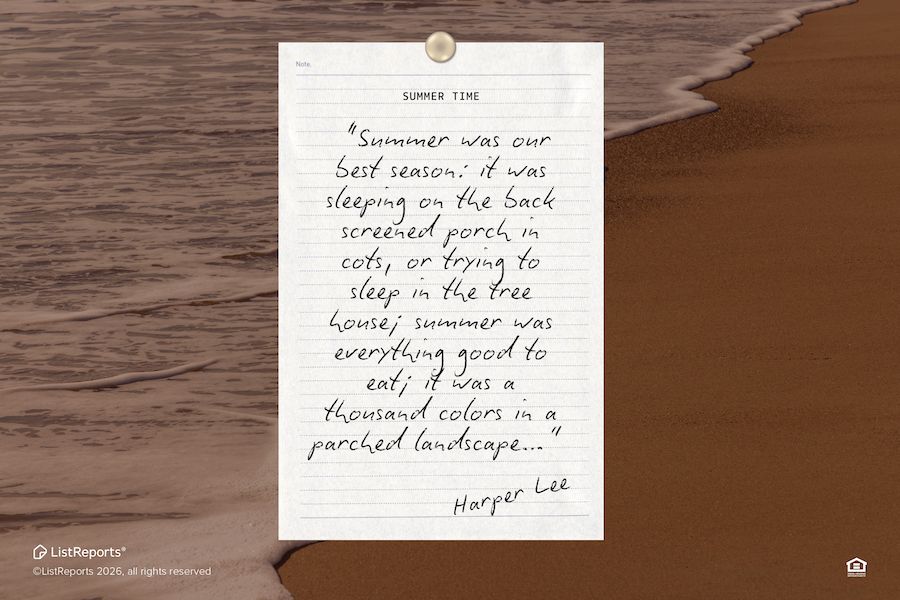 Note.
SUMMER TIME
"Summer was our
best season: it was
sleeping on the back
screened porch in
cots, or trying to
sleep in the tree
house; summer was
everything good to
eat; it was a
thousand colors in a
parched landscape..."
Harper Lee
ListReports®
©ListReports 2026, all rights reserved